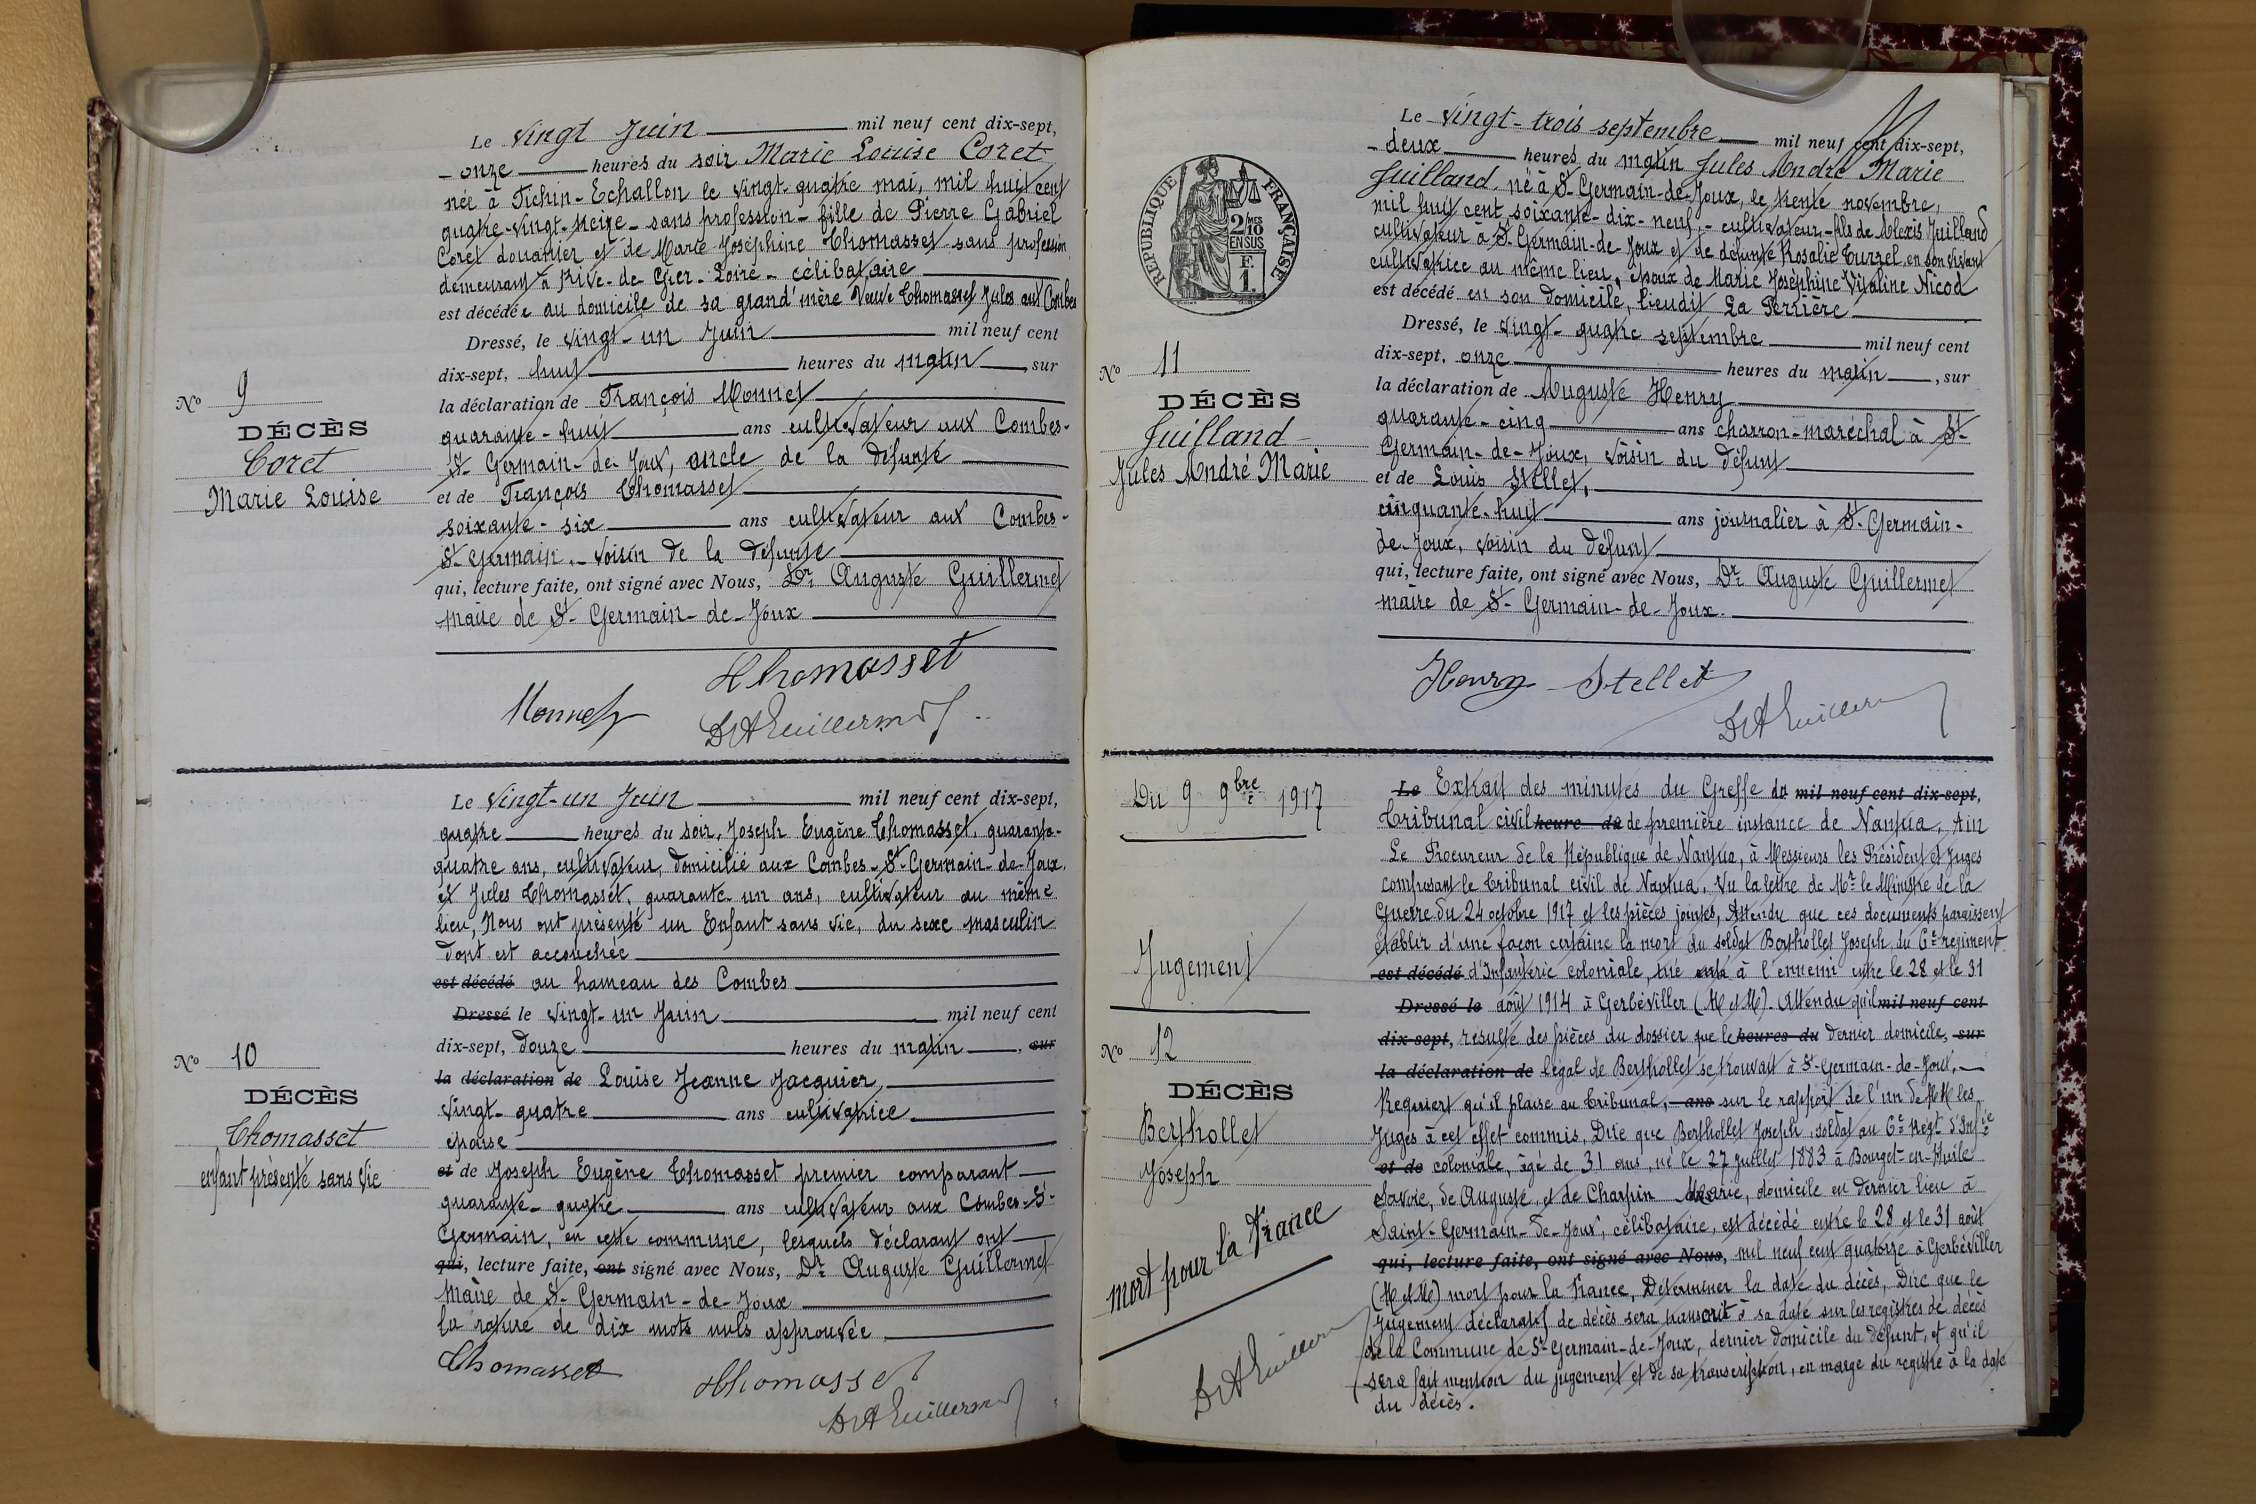 Le Vingt Juin mil neuf cent dix-sept,
- onze heures du soir Marie Louise Coret
née à Tichin-Echallon le vingt-quatre mai, mil huit cent
quatre-vingt-treize - sans profession - fille de Pierre Gabriel
Coret douanier et de Marie Joséphine Thomasset sans profession
demeurant à Rive-de-Gier-Loire - célibataire
est décédée au domicile de sa grand'mère Veuve Thomasset Jules aux Combes
Dressé, le vingt-un Juin mil neuf cent
dix-sept, huit heures du matin, sur
la déclaration de François Monnet
quarante-huit ans cultivateur aux Combes-
St-Germain-de-Joux, oncle de la défunte
et de François Thomasset
soixante-six ans cultivateur aux Combes-
St Germain - voisin de la défunte
qui, lecture faite, ont signé avec Nous, Dr Auguste Guillermet
maire de St Germain-de-Joux
Nº 9
DÉCÈS
Coret
Marie Louise
Thomasset
Monnet
Dr A Guillermet
Le Vingt-un Juin mil neuf cent dix-sept,
quatre heures du soir, Joseph Eugène Thomasset, quarante-
quatre ans, cultivateur, domicilié aux Combes-St-Germain-de-Joux,
et Jules Thomasset, quarante-un ans, cultivateur au même
lieu, Nous ont présenté un Enfant sans vie, du sexe masculin
dont est accouchée
est décédé au hameau des Combes
Dressé le vingt-un Juin mil neuf cent
dix-sept, douze heures du matin, sur
la déclaration de Louise Jeanne Jacquier,
vingt-quatre ans cultivatrice
épouse
et de Joseph Eugène Thomasset premier comparant
quarante-quatre ans cultivateur aux Combes-St-
Germain, en cette commune, lesquels déclarant ont
qui, lecture faite, ont signé avec Nous, Dr Auguste Guillermet
Maire de St-Germain-de-Joux
la rature de dix mots nuls approuvée
Nº 10
DÉCÈS
Thomasset
enfant présenté sans vie
Thomasset
Thomasset
Dr A Guillermet
RÉPUBLIQUE FRANÇAISE
2/10 MES
EN SUS
F.
1.
Le Vingt-trois septembre mil neuf cent dix-sept,
- deux heures du matin Jules André Marie
Juilland né à St-Germain-de-Joux, le trente novembre,
mil huit cent soixante-dix-neuf, - cultivateur - fils de Alexis Juilland
cultivateur à St-Germain-de-Joux et de défunte Rosalie Turrel, en son vivant
cultivatrice au même lieu, époux de Marie Joséphine Vitaline Nicod
est décédé en son domicile, lieudit La Perrière
Dressé, le vingt-quatre septembre mil neuf cent
dix-sept, onze heures du matin, sur
la déclaration de Auguste Henry
quarante-cinq ans charron-maréchal à St-
Germain-de-Joux, voisin du défunt
et de Louis Stellet,
cinquante-huit ans journalier à St-Germain-
de-Joux, voisin du défunt
qui, lecture faite, ont signé avec Nous, Dr Auguste Guillermet
maire de St-Germain-de-Joux.
Nº 11
DÉCÈS
Juilland
Jules André Marie
Henry Stellet
Dr A Guillermet
Du 9 9bre 1917
Jugement
Nº 12
DÉCÈS
Berthollet
Joseph
mort pour la France
Dr A Guillermet
Le Extrait des minutes du Greffe du mil neuf cent dix-sept,
Tribunal civil heure du de première instance de Nantua, Ain
Le Procureur de la République de Nantua, à Messieurs les Président et Juges
composant le tribunal civil de Nantua, Vu la lettre de Mr le Ministre de la
Guerre du 24 octobre 1917 et les pièces jointes, Attendu que ces documents paraissent
établir d'une façon certaine la mort du soldat Berthollet Joseph, du 6e régiment
est décédé d'Infanterie coloniale, tué à l'ennemi entre le 28 et le 31
Dressé le août 1914 à Gerbéviller (M et M). Attendu qu'il mil neuf cent
dix-sept, résulte des pièces du dossier que le heures du dernier domicile, sur
la déclaration de légal de Berthollet se trouvait à St-Germain-de-Joux,
Requiert qu'il plaise au tribunal, ans sur le rapport de l'un de MM les
Juges à cet effet commis, Dire que Berthollet Joseph, soldat au 6e Régt d'Infie
et de coloniale, âgé de 31 ans, né le 27 juillet 1883 à Bourget-en-Huile
Savoie, de Auguste, et de Charpin Marie, domicilié en dernier lieu à
Saint-Germain-de-Joux, célibataire, est décédé entre le 28 et le 31 août
qui, lecture faite, ont signé avec Nous, mil neuf cent quatorze à Gerbéviller
(M et M) mort pour la France, Déterminer la date du décès, Dire que le
Jugement déclaratif de décès sera transcrit à sa date sur les registres de décès
de la Commune de St-Germain-de-Joux, dernier domicile du défunt, et qu'il
sera fait mention du jugement et de sa transcription, en marge du registre à la date
du décès.